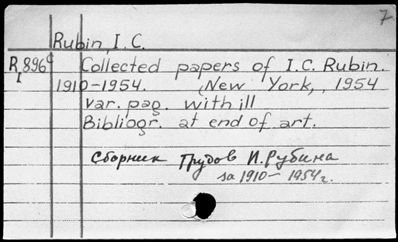 7
Rubin, I.C.
R896c Collected papers of I.C. Rubin.
1 1910-1954. , New York, , 1954
var. pag. with ill
Bibliogr. at end of art.
Сборник Трудов И. Рубина
за 1910-1954г.